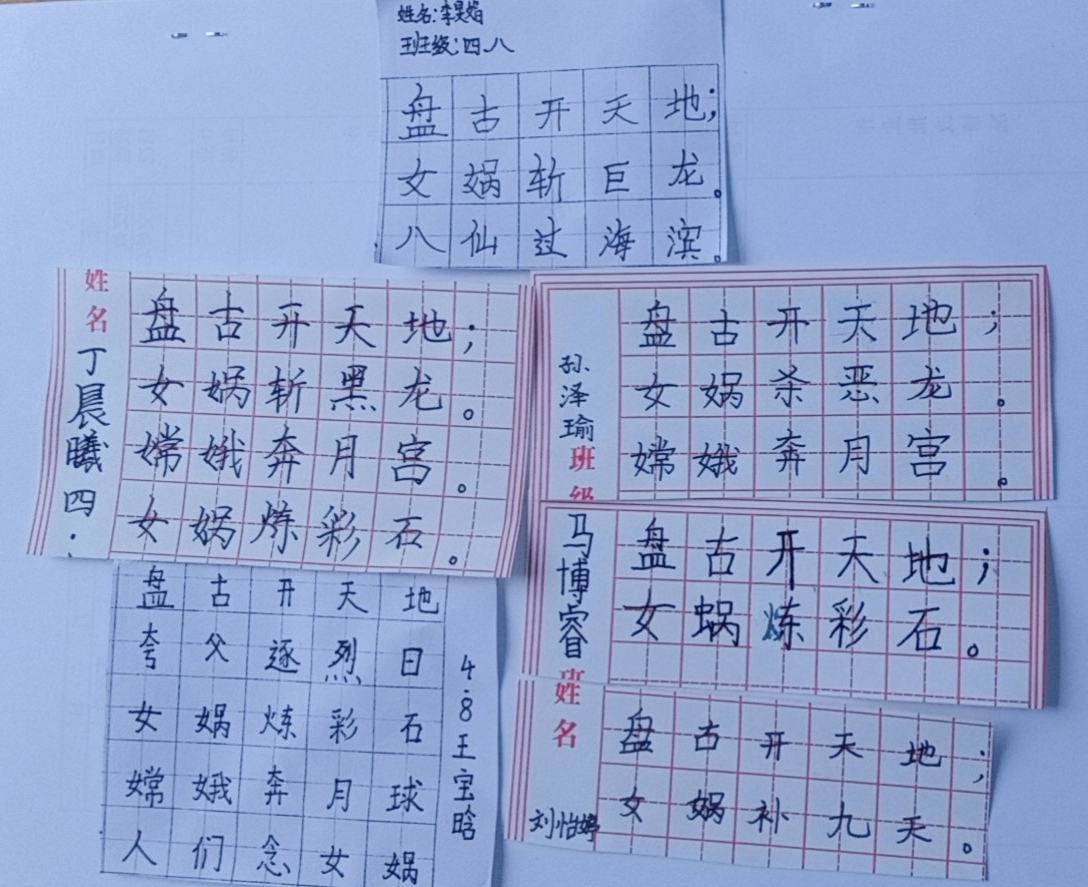 姓名:李昊焰
班级:四.八
盘古开天地;
女娲斩巨龙。
八仙过海滨。
姓名
丁晨曦四.
盘古开天地;
女娲斩黑龙。
嫦娥奔月宫。
女娲炼彩石。
孙泽瑜
班级
盘古开天地;
女娲杀恶龙。
嫦娥奔月宫。
马博睿
班
盘古开天地;
女蜗炼彩石。
盘古开天地
夸父逐烈日
女娲炼彩石
嫦娥奔月球
人们念女娲
4.8王宝晗
姓名
刘怡婷
盘古开天地;
女娲补九天。